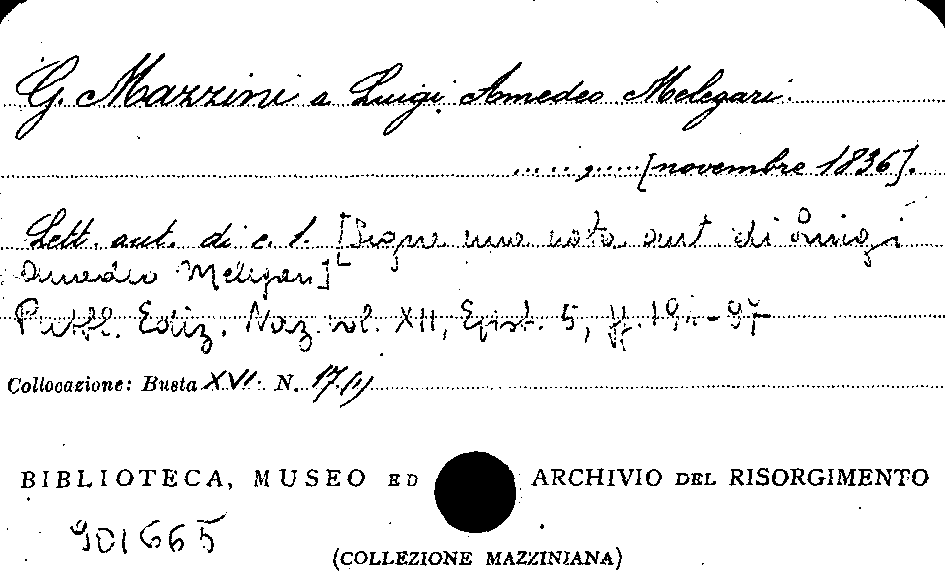 G. Mazzini a Luigi Amedeo Melegari.
..... , .....[novembre 1836].
Lett. aut. di c. 1. [Segue una nota aut di Luigi
Amedeo Melegari]
Pubbl. Ediz. Naz. vol. XII, Epist. 5, ff.
Collocazione: Busta XVI. N. 17.(1)
BIBLIOTECA, MUSEO ED ARCHIVIO DEL RISORGIMENTO
901665
(COLLEZIONE MAZZINIANA)